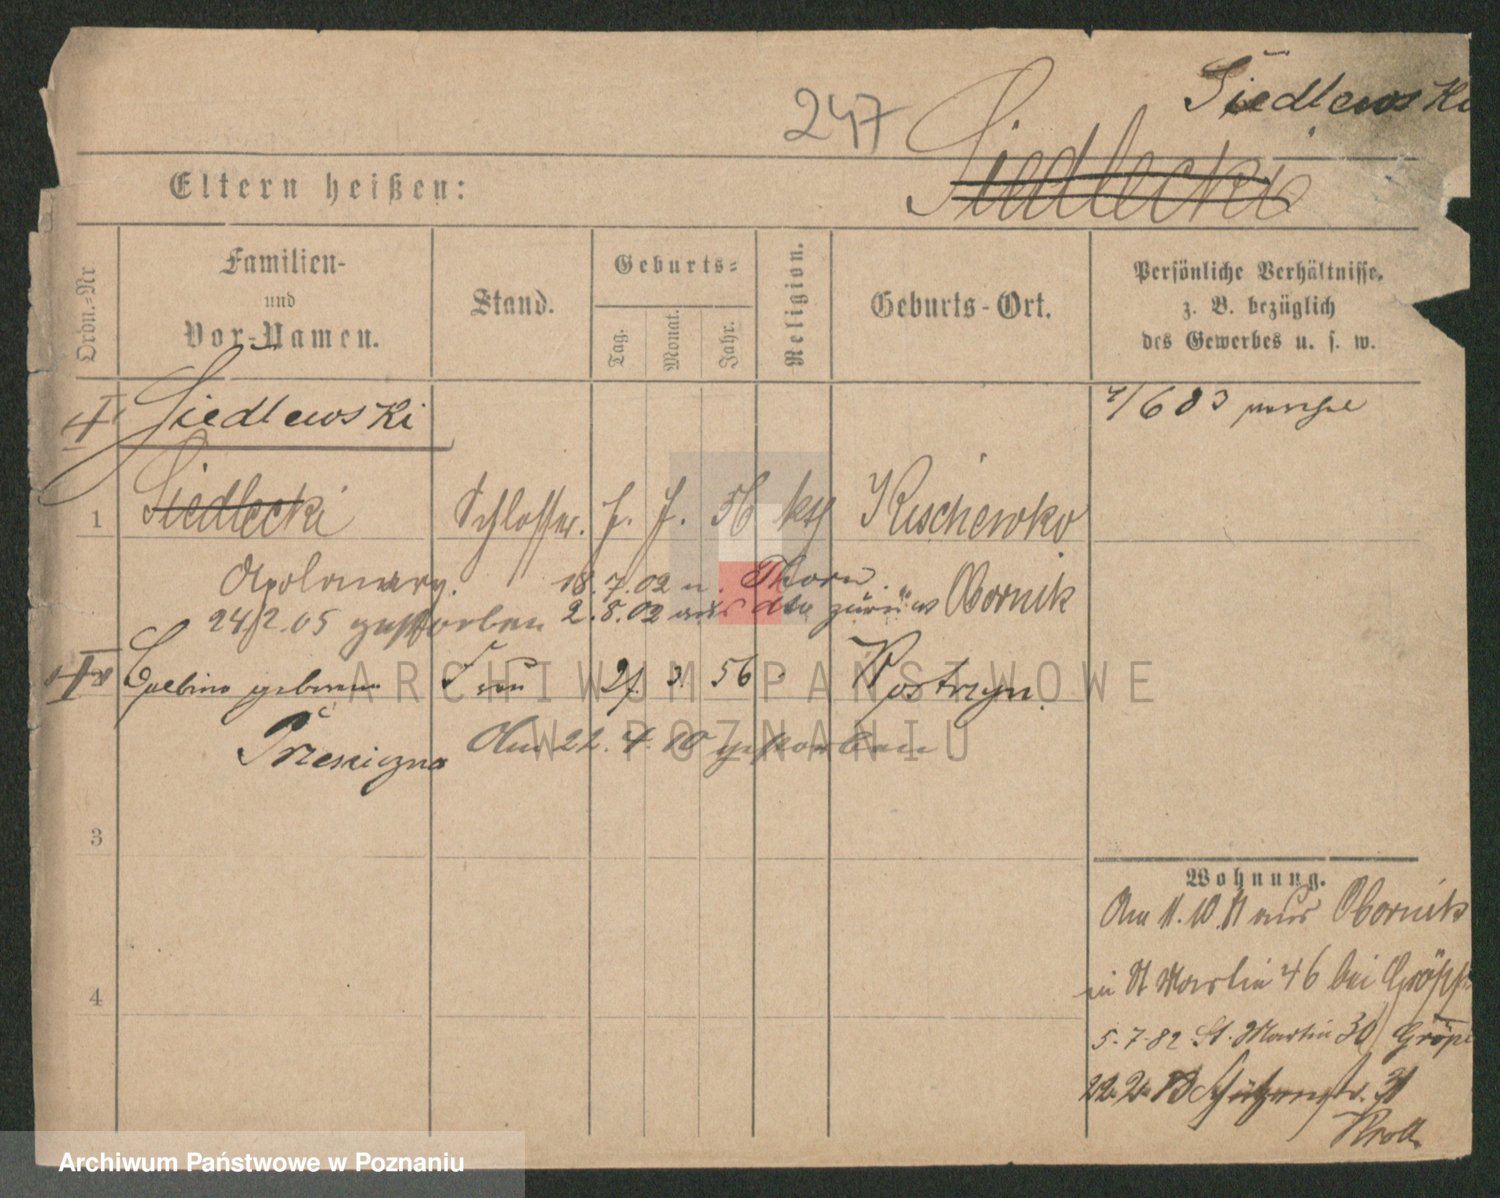 247
Siedlewski
Siedlecki
Eltern heißen:
Ordn.=Nr
Familien-
und
Vor-Namen.
Stand.
Geburts=
Tag.
Monat.
Jahr.
Religion.
Geburts-Ort.
Persönliche Verhältnisse,
z. B. bezüglich
des Gewerbes u. s. w.
Siedlewski
1 Siedlecki Schlosser. 56 kth
Apolinary. 18.7.02 n. Thorn Obornik
24/2.05 gestorben 2.8.02 aus dto zurück
geborene Frau 27. 3. 56 Kostrzyn
Am 22.4.10 gestorben
3
4
Wohnung.
Am 11.10.81 aus Obornik
in St Martin 46 bei
5.7.82 St. Martin 30
Schützenstr. 31
Kroll
ARCHIWUM PAŃSTWOWE
W POZNANIU
Archiwum Państwowe w Poznaniu